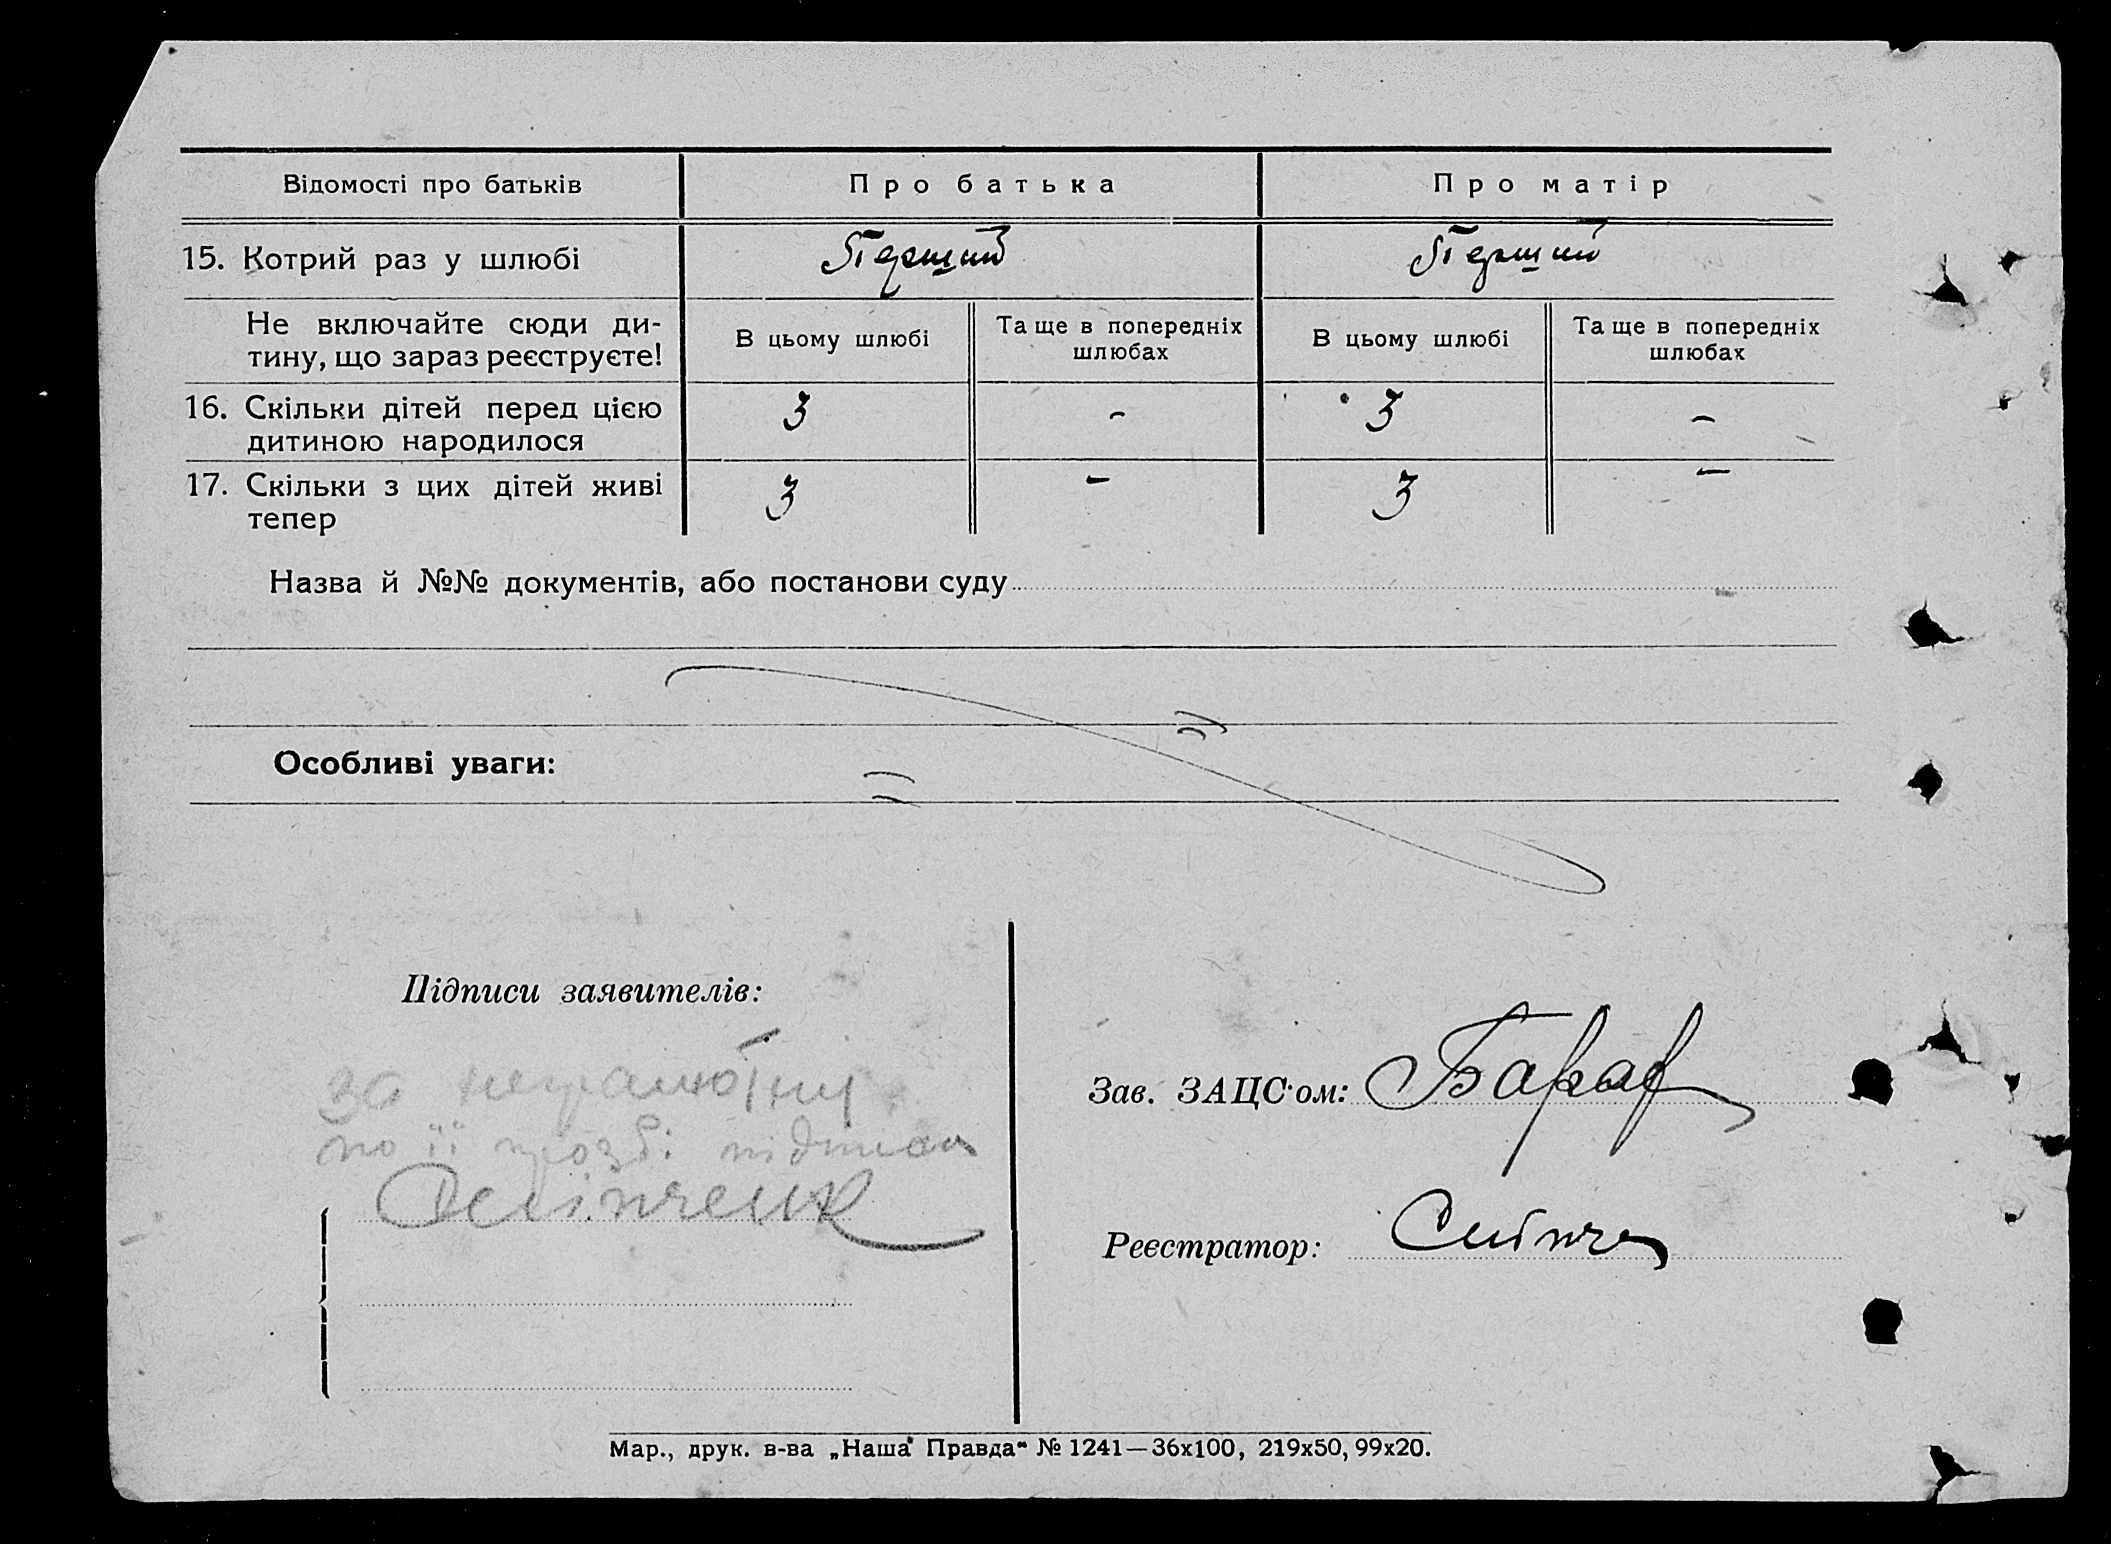 Відомості про батьків Про батька Про матір
15. Котрий раз у шлюбі Перший Перший
Не включайте сюди ди-
тину, що зараз реєструєте!
В цьому шлюбі Та ще в попередніх шлюбах В цьому шлюбі Та ще в попередніх шлюбах
16. Скільки дітей перед цією
дитиною народилося 3 - 3 -
17. Скільки з цих дітей живі
тепер 3 - 3 -
Назва й №№ документів, або постанови суду
Особливі уваги:
Підписи заявителів:
за неграмотну
по її прозбі підписав
Зав. ЗАЦС'ом:
Реєстратор:
Мар., друк. в-ва „Наша Правда" № 1241—36х100, 219х50, 99х20.